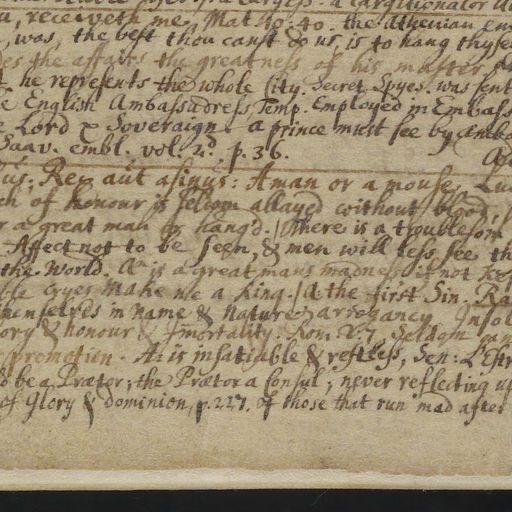 u, receiveth me, Mat. 10: 40. the Athenian em
, was, the best thou canst do us, is to hang thyse
es the affairs the greatness of his master
he represents the whole City. Secret Spyes. was sent
English Ambassadress Temp. Employed in Embass
Lord & Soveraign. a prince must see by Amba
Saav. embl. vol. 2d, p. 36.
us: Rex aut asinus: A man or a mouse, Lu
ch of honour is seldom allayd without blood,
r a great man or hang'd. / There is a troublesom
Affect not to be seen, & men will less see th
the World. An is a great mans madness if not ke
cryes Make me a King. / A the first Sin. Ra
hemselves in name & nature, arrogancy Insol
ory & honour & Immortality. Rom. 2.7. Seldom can
promotion. A: is insatiable & restless, Sen: L'Estr
d be a Prætor; the Prætor a Consul; never reflecting up
of Glory & dominion, p. 227. of those that run mad after